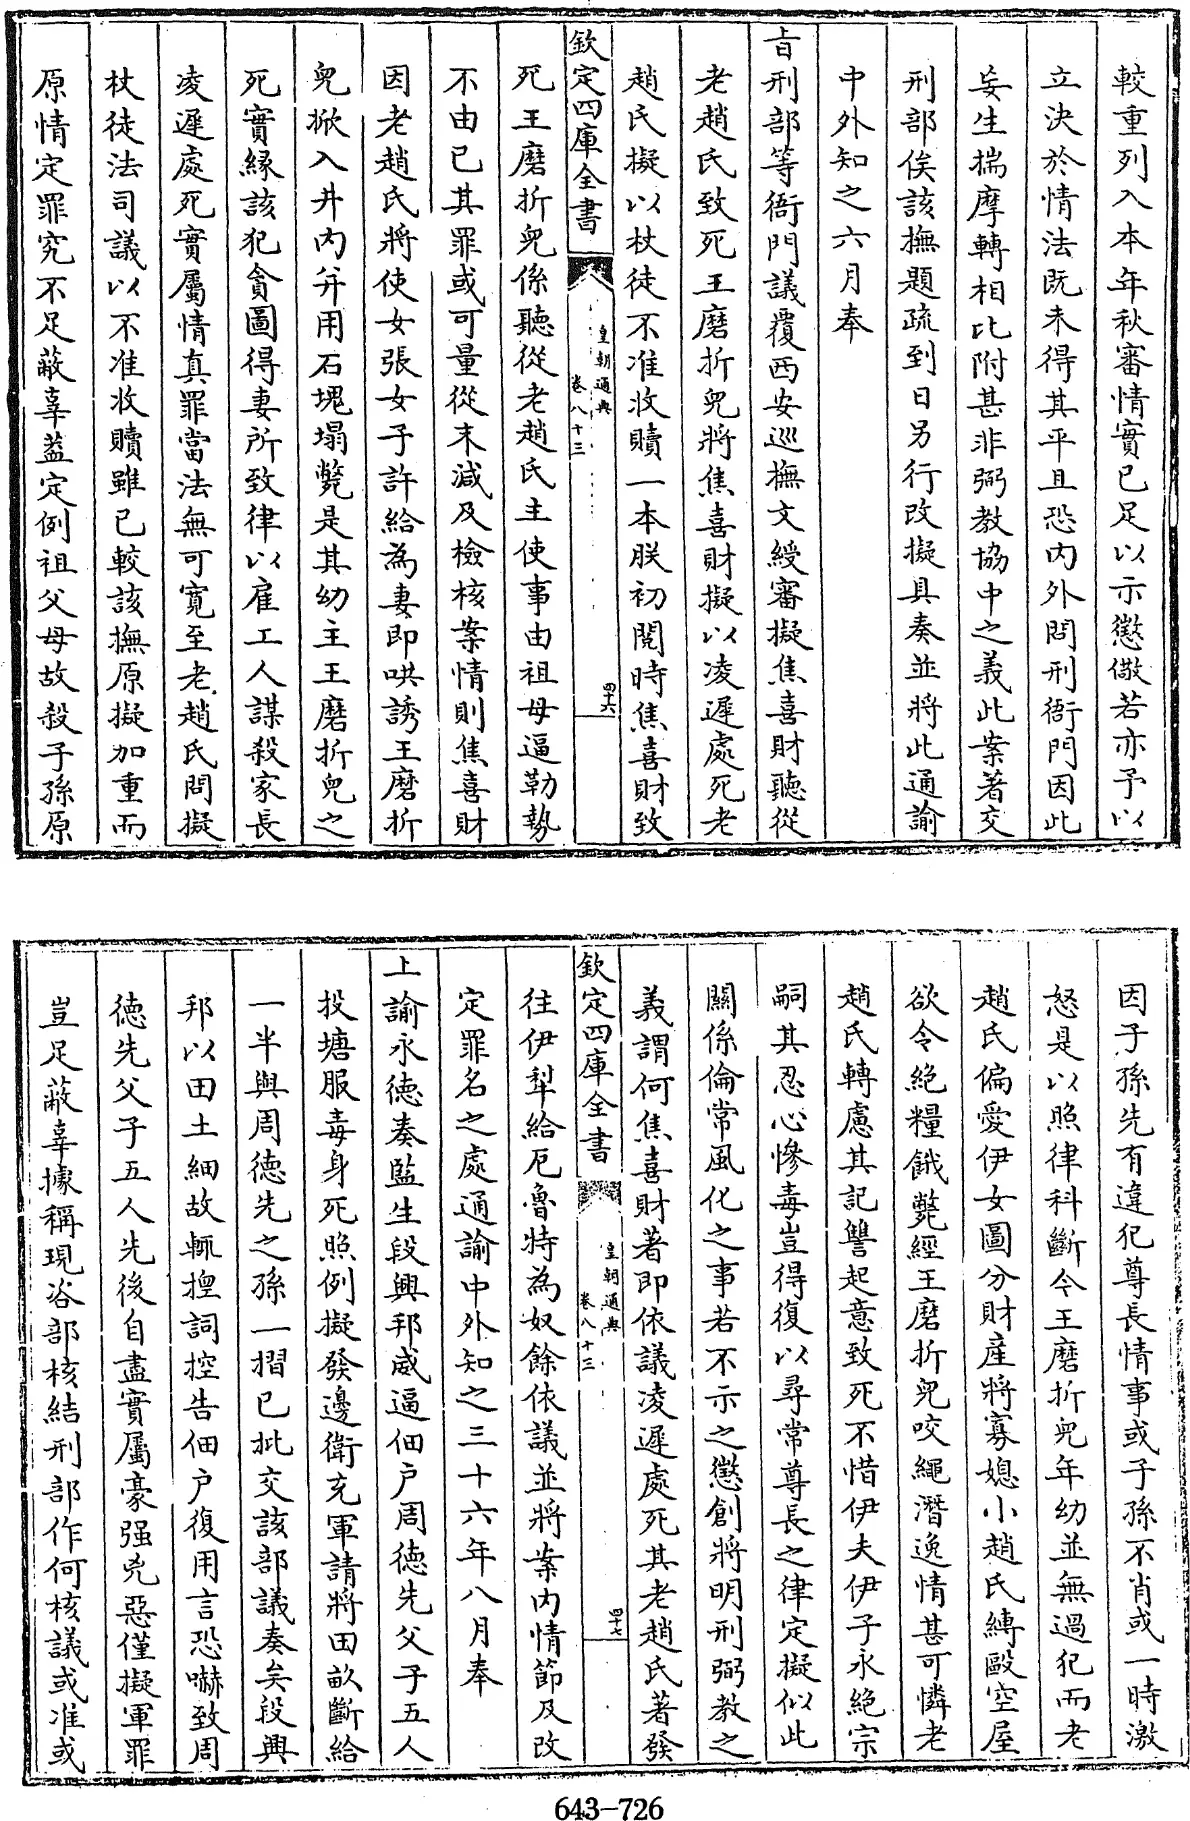 較重列入本年秋審情實已足以示懲儆若亦予以
立決於情法既未得其平且恐内外問刑衙門因此
妄生揣摩轉相比附甚非弼教協中之義此案著交
刑部俟該撫題疏到日另行改擬具奏並將此通諭
中外知之六月奉
旨刑部等衙門議覆西安巡撫文綬審擬焦喜財聽從
老趙氏致死王磨折兒將焦喜財擬以凌遲處死老
趙氏擬以杖徒不准收贖一本朕初閱時焦喜財致
欽定四庫全書
皇朝通典
卷八十三
四十六
死王磨折兒係聽從老趙氏主使事由祖母逼勒勢
不由已其罪或可量從末減及檢核案情則焦喜財
因老趙氏將使女張女子許給為妻即哄誘王磨折
兒掀入井内并用石塊塌斃是其幼主王磨折兒之
死實緣該犯貪圖得妻所致律以雇工人謀殺家長
凌遲處死實屬情真罪當法無可寛至老趙氏問擬
杖徒法司議以不准收贖雖已較該撫原擬加重而
原情定罪究不足蔽辜葢定例祖父母故殺子孫原
因子孫先有違犯尊長情事或子孫不肖或一時激
怒是以照律科斷今王磨折兒年幼並無過犯而老
趙氏偏愛伊女圖分財產將寡媳小趙氏縛毆空屋
欲令絶糧餓斃經王磨折兒咬繩潛逸情甚可憐老
趙氏轉慮其記讐起意致死不惜伊夫伊子永絶宗
嗣其忍心慘毒豈得復以尋常尊長之律定擬似此
關係倫常風化之事若不示之懲創將明刑弼教之
義謂何焦喜財著即依議凌遲處死其老趙氏著發
欽定四庫全書
皇朝通典
卷八十三
四十七
往伊犂給厄魯特為奴餘依議並將案内情節及改
定罪名之處通諭中外知之三十六年八月奉
上諭永德奏監生段興邦威逼佃户周德先父子五人
投塘服毒身死照例擬發邊衛充軍請將田畝斷給
一半與周德先之孫一摺已批交該部議奏矣段興
邦以田土細故輒揑詞控告佃户復用言恐嚇致周
德先父子五人先後自盡實屬豪强兇惡僅擬軍罪
豈足蔽辜據稱現咨部核結刑部作何核議或准或
643-726